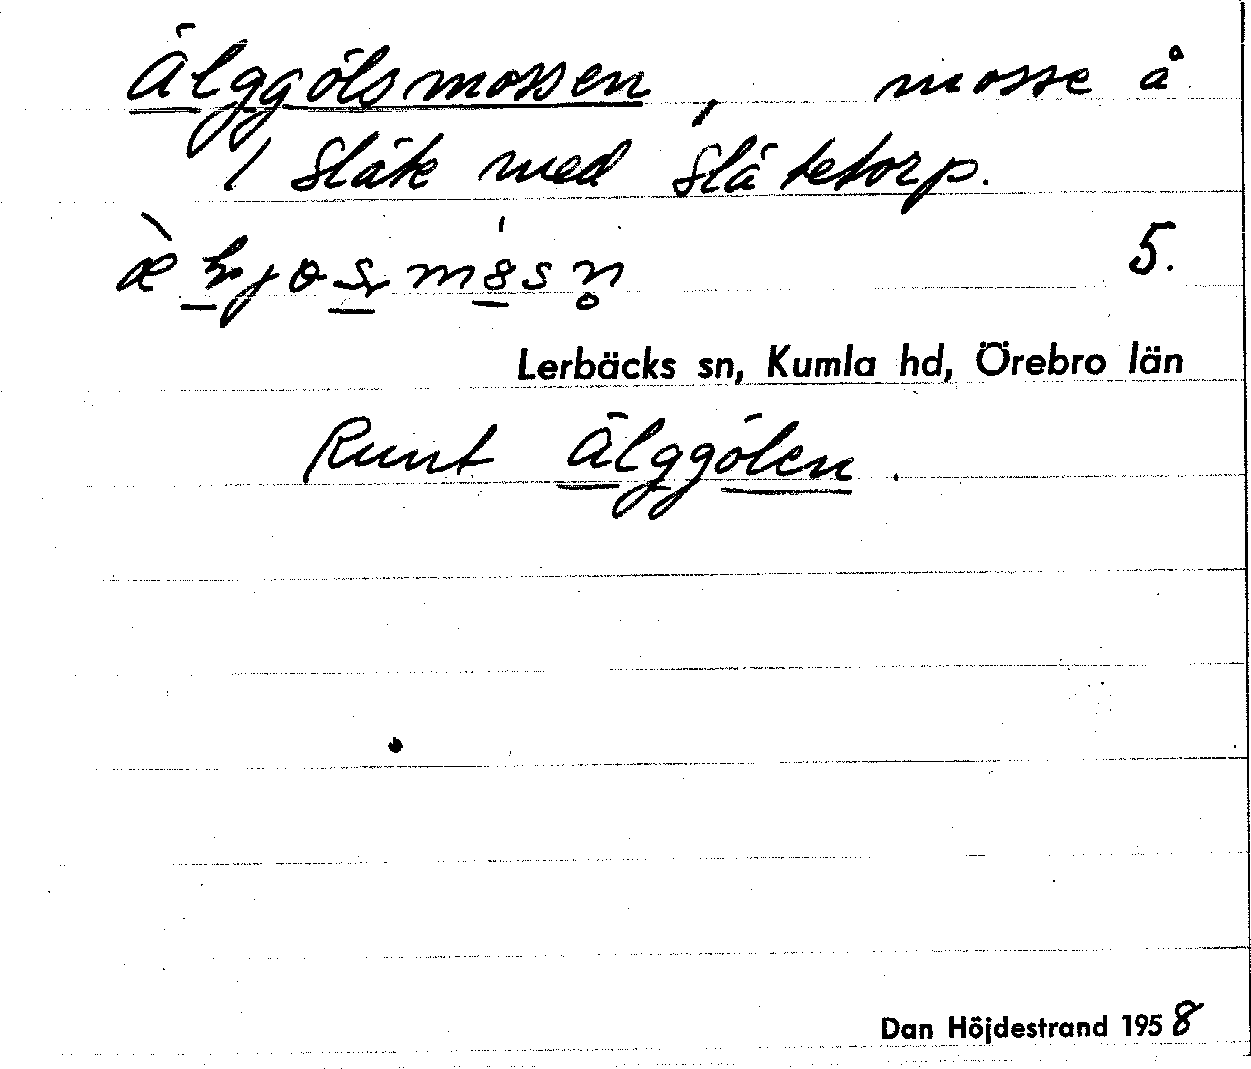 Älggölsmossen, mosse å
1 Släte med Slätetorp.
5.
Lerbäcks sn, Kumla hd, Örebro län
Runt Älggölen.
Dan Höjdestrand 1958